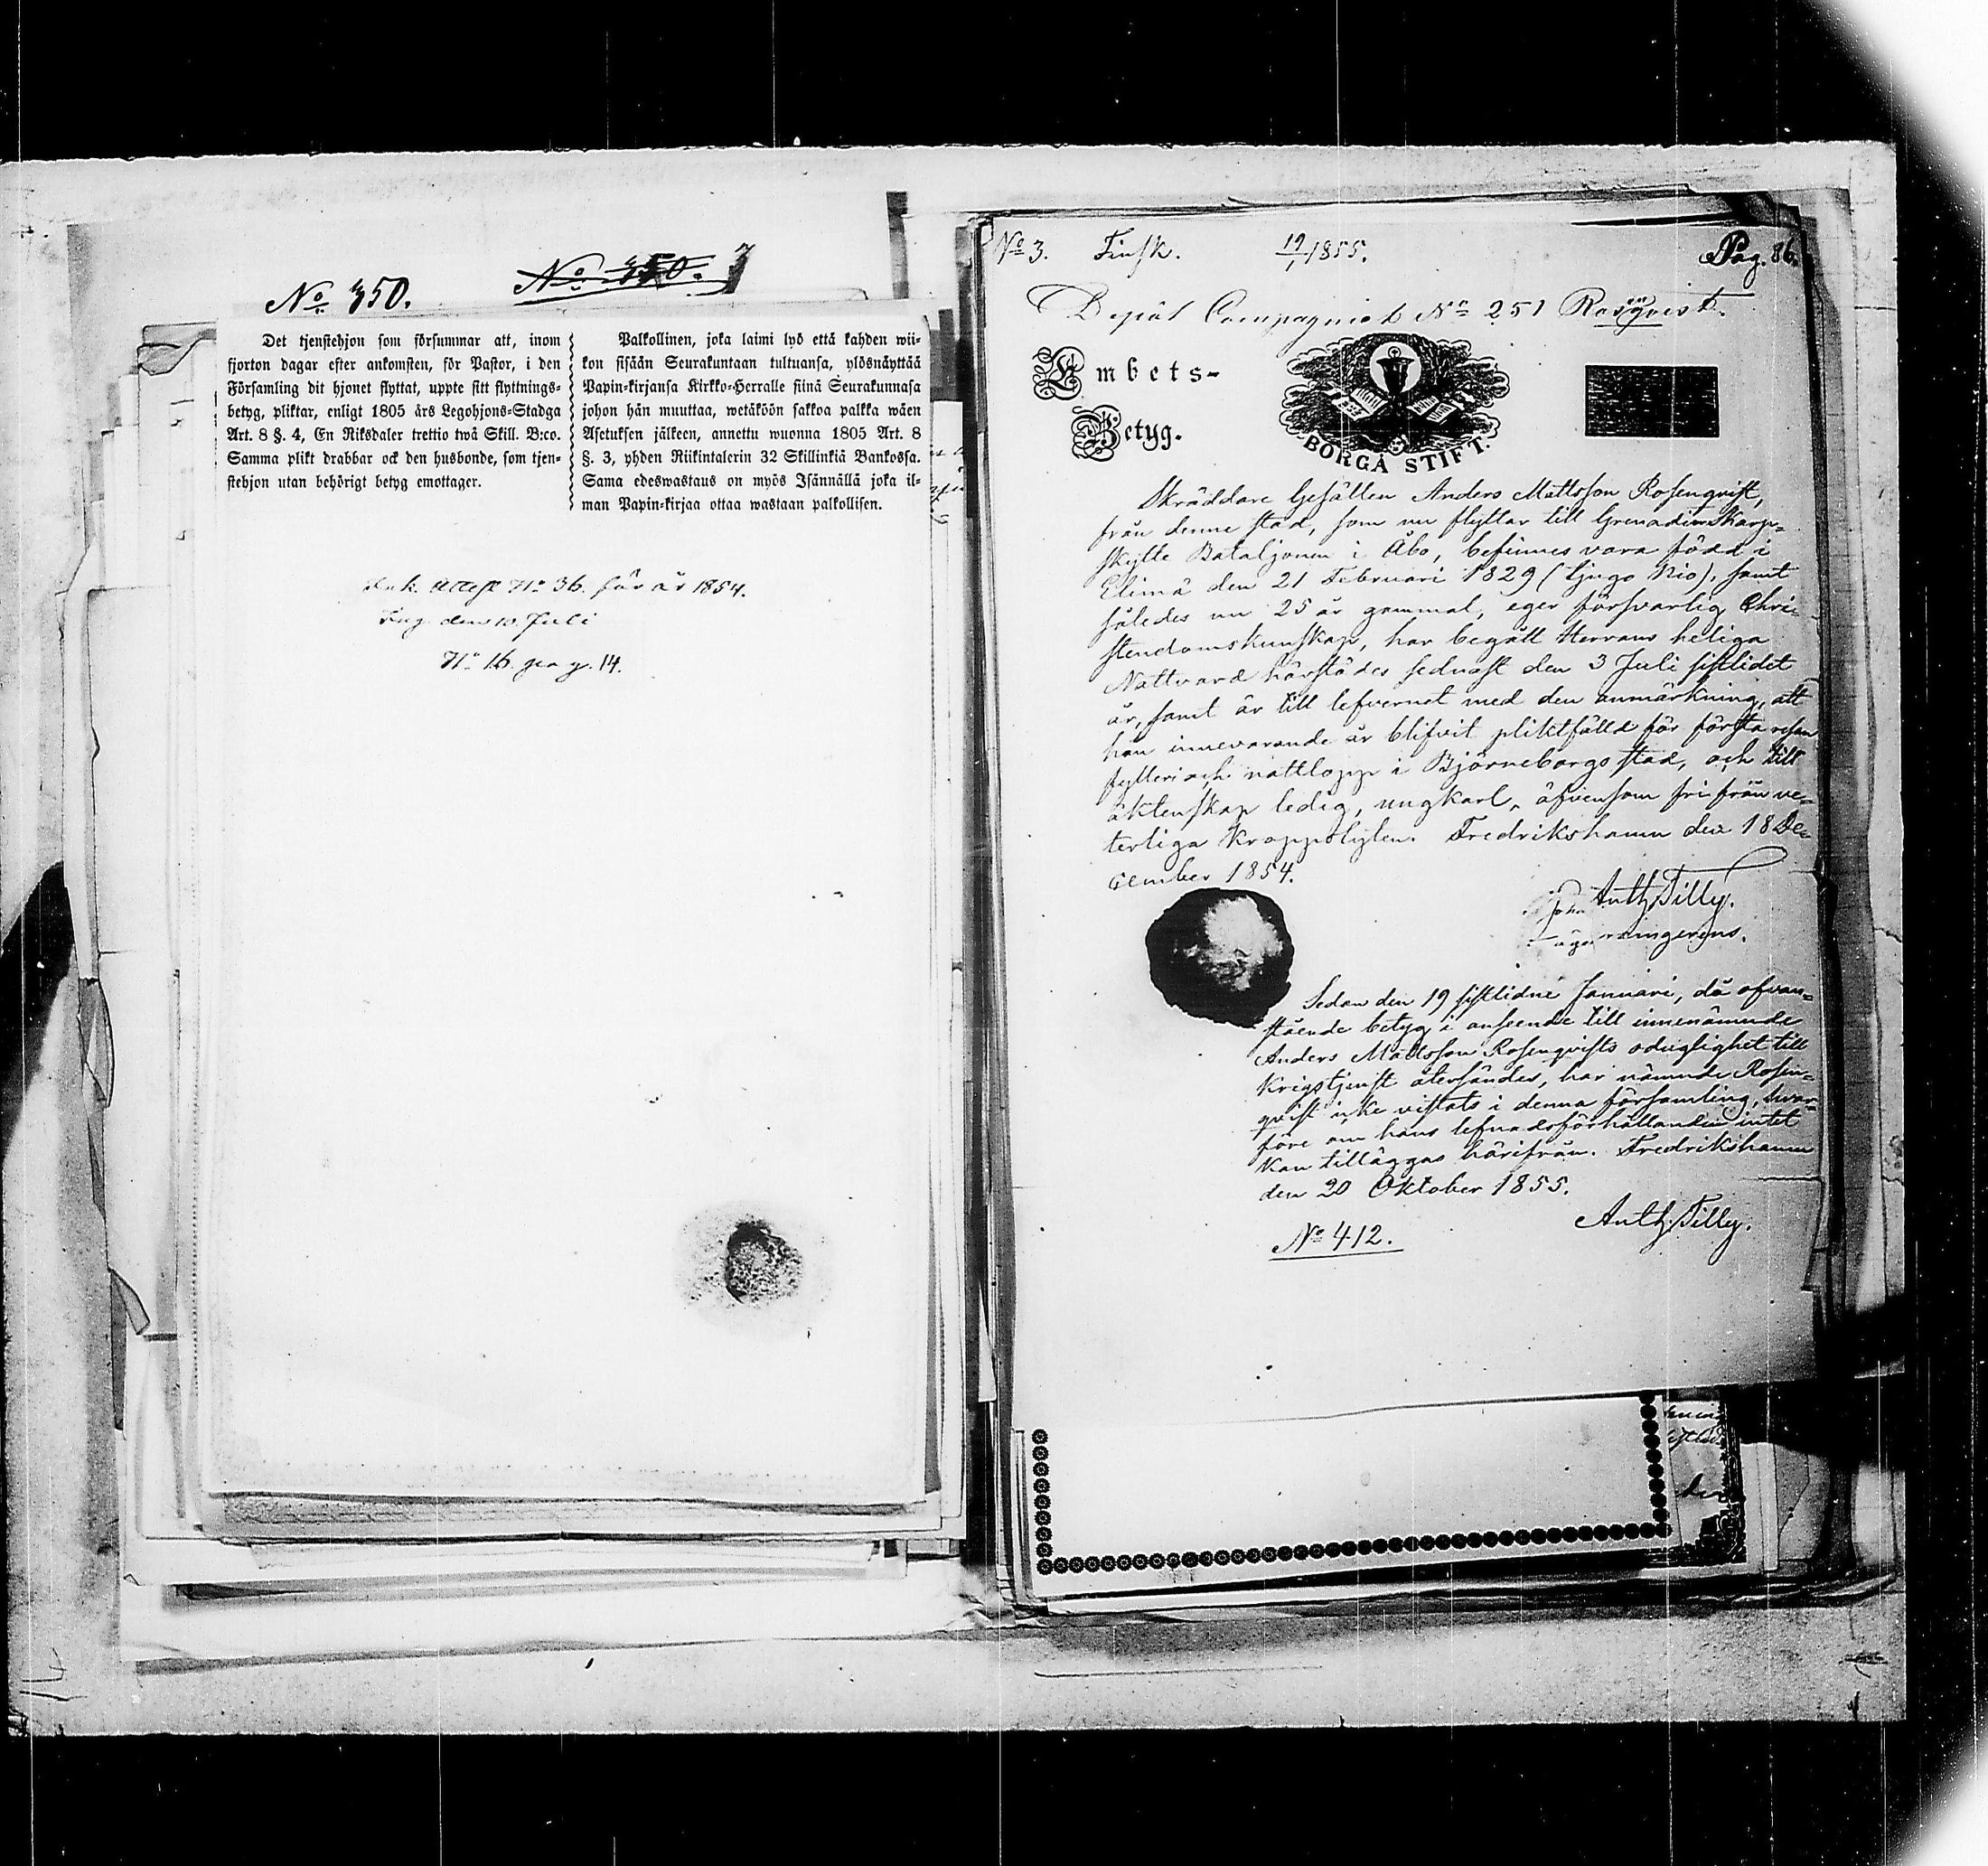 No 350.
No 350.
Det tjenstehjon som försummar att, inom
fjorton dagar efter ankomsten, för Pastor, i den
Församling dit hjonet flyttat, uppte sitt flyttnings-
betyg, pliktar, enligt 1805 års Legohjons-Stadga
Art. 8 §. 4, En Riksdaler trettio twå Skill. B:co.
Samma plikt drabbar ock den husbonde, som tjen-
stehjon utan behörigt betyg emottager.
Palkollinen, joka laimi lyö että kahden wii-
kon sisään Seurakuntaan tultuansa, ylösnäyttää
Papin-kirjansa Kirkko-Herralle siinä Seurakunnasa
johon hän muuttaa, wetäköön sakkoa palkka wäen
Asetuksen jälkeen, annettu wuonna 1805 Art. 8
§. 3, yhden Riikintalerin 32 Skillinkiä Bankossa.
Sama edeswastaus on myös Isännällä joka il-
man Papin-kirjaa ottaa wastaan palkollisen.
attest No 36. för år 1854.
den 10. Juli
No 16. pag. 14.
No 3. Finsk. 19/1 1855. Pag. 86.
Depôt Compagniet No 251 Rosqvist.
Embets-
Betyg.
BORGÅ STIFT.
Skräddare Gesällen Anders Mattsson Rosenqvist,
från denne stad, som nu flyttar till Grenadier Skarp-
skytte Bataljonen i Åbo, befinnes vara född i
Elimä den 21 Februari 1829 (tjugo nio), samt
således nu 25 år gammal, eger försvarlig Chri-
stendomskunskap, har begått Herrans heliga
Nattvard härstädes sednast den 3 Juli sistlidet
år, samt är till lefvernet med den anmärkning, att
han innevarande år blifvit pliktfälld för första resan
fylleri och nattlopp i Björneborgs stad, och till
äktenskap ledig, ungkarl, äfvensom fri från ve-
terliga kroppslyten. Fredrikshamn den 18 De-
cember 1854.
Anth. Tilly.
Sedan den 19 sistlidne Januari, då ofvan-
stående betyg i anseende till innenämnde
Anders Mattsson Rosenqvists oduglighet till
Krigstjenst återsändes, har nämnde Rosen-
qvist icke vistats i denna församling, hvar-
före om hans lefnadsförhållanden intet
kan tilläggas härifrån. Fredrikshamn
den 20 Oktober 1855.
Anth. Tilly.
No 412.